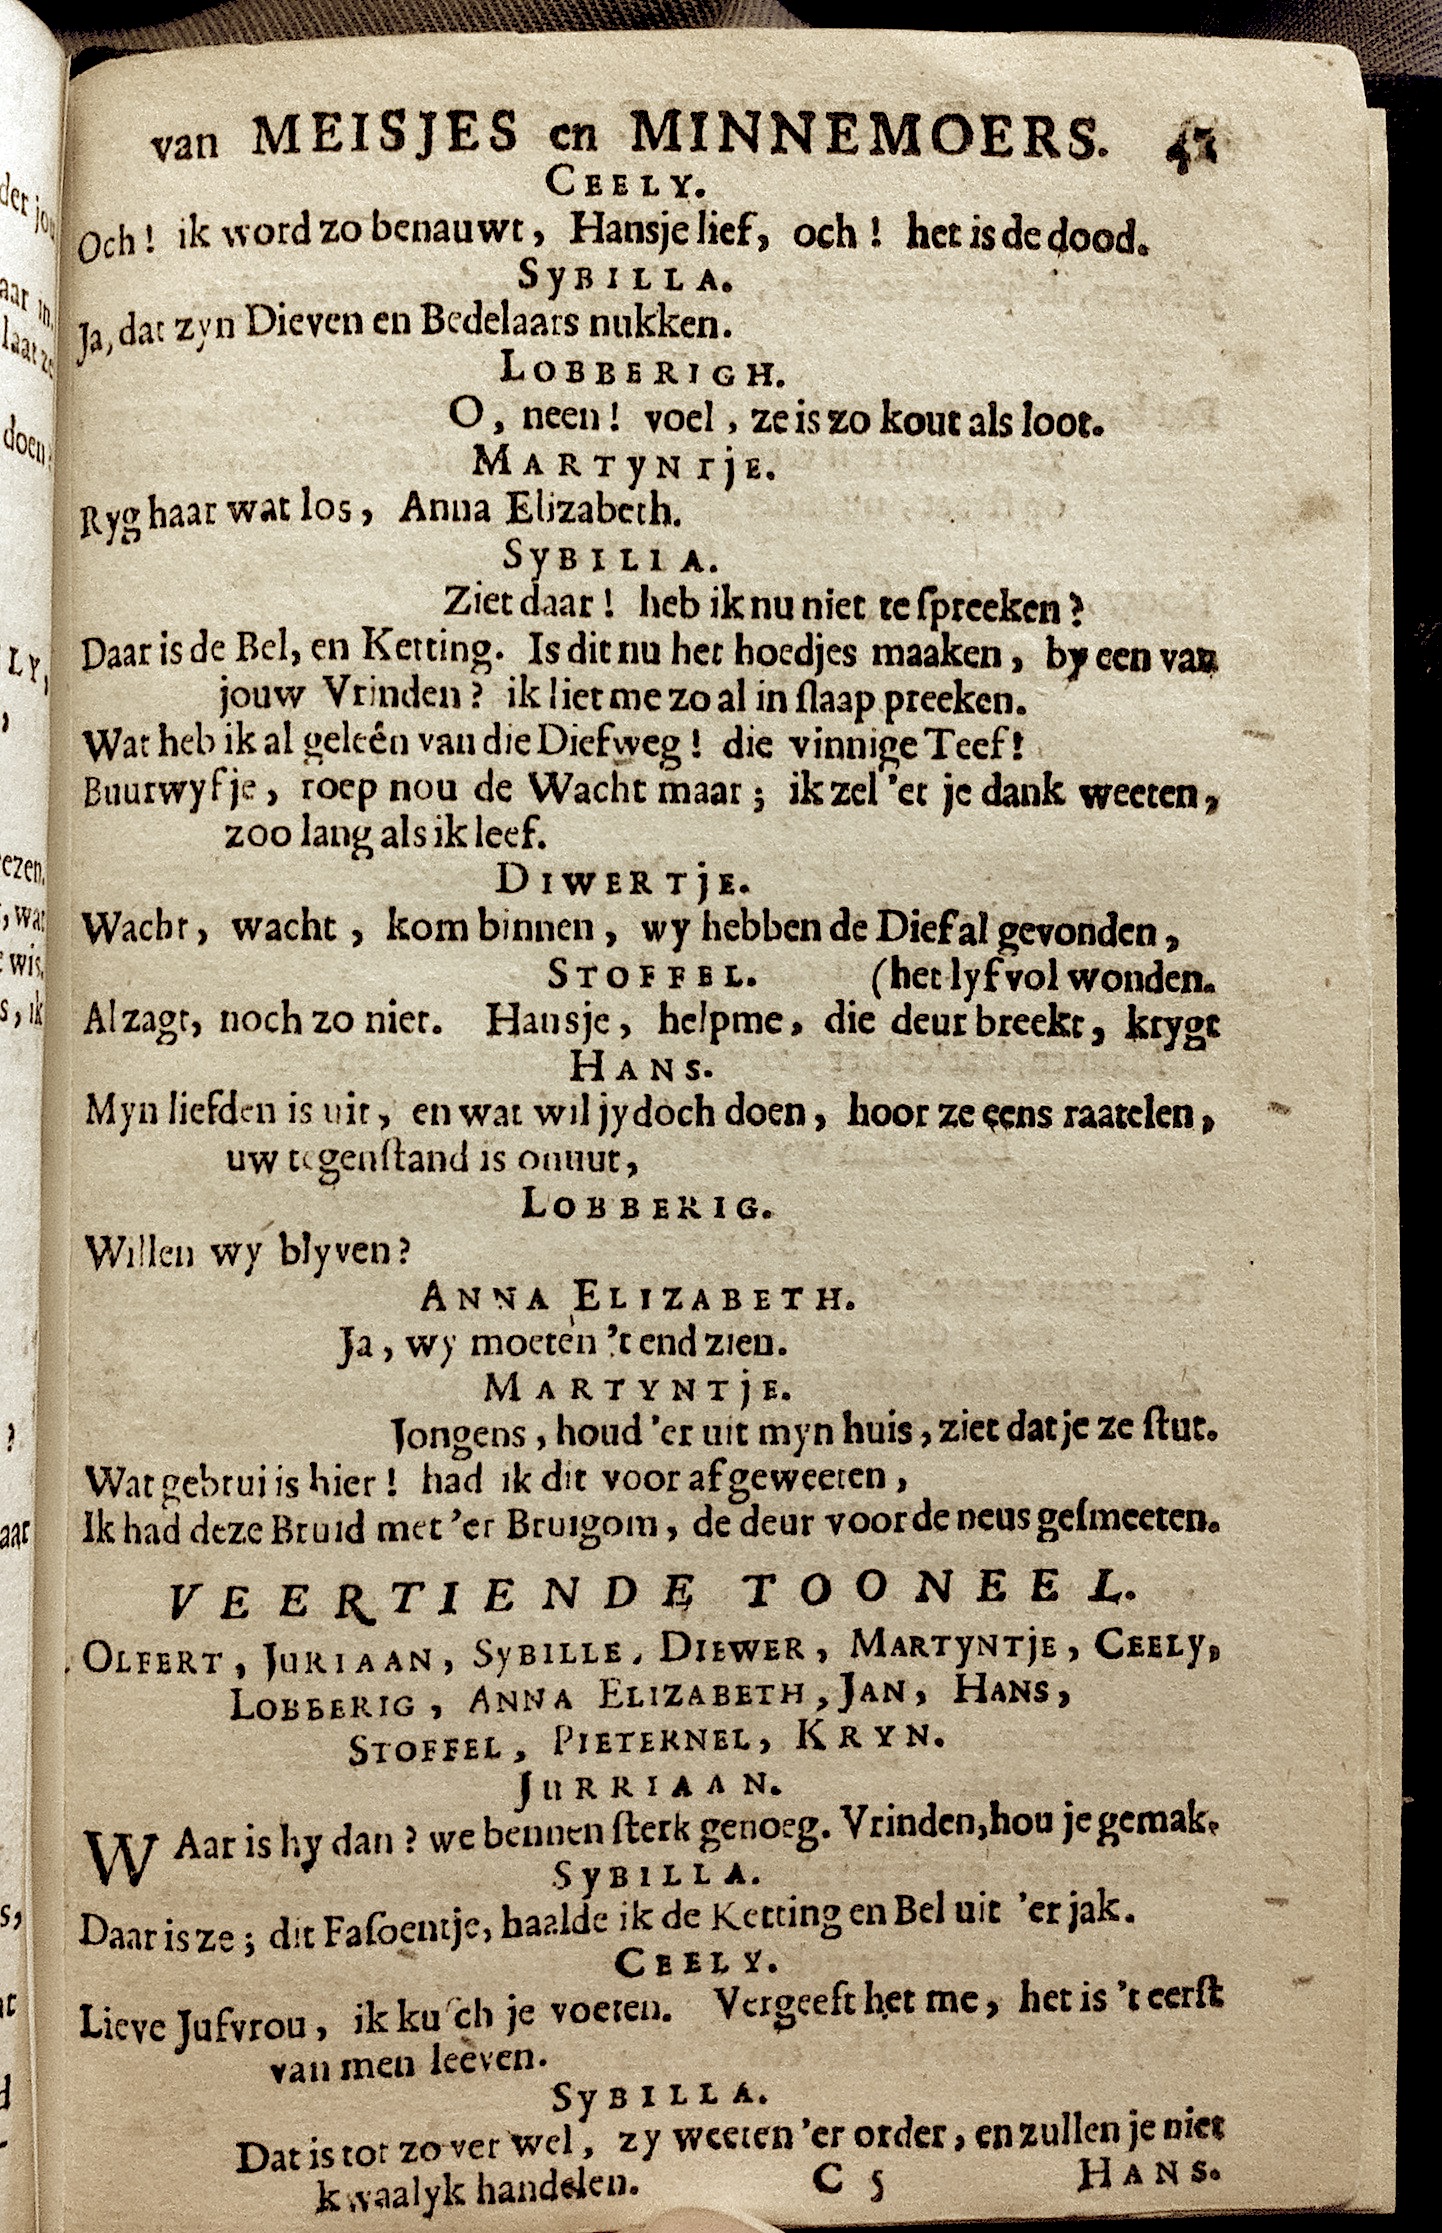 van MEISJES en MINNEMOERS.
CEELY.
Och! ik word zo benauwt, Hansje lief, och! het is de dood.
SyBILLA.
Ja, dat zyn Dieven en Bedelaars nukken.
LOBBERIGH.
O, neen! voel, ze is zo kout als loot.
MARTyNTjE.
Ryg haar wat los, Anna Elizabeth.
SyBILIA.
Ziet daar! heb ik nu niet te ſpreeken?
Daar is de Bel, en Ketting. Is dit nu het hoedjes maaken, by een van
jouw Vrinden? ik liet me zo al in ſlaap preeken.
Wat heb ik al geleên van die Diefweg! die vinnige Teef!
Buurwyfje, roep nou de Wacht maar; ik zel 'et je dank weeten,
zoo lang als ik leef.
DIWERTjE.
Wacht, wacht, kom binnen, wy hebben de Dief al gevonden,
STOFFEL. (het lyf vol wonden.
Al zagt, noch zo niet. Hansje, help me, die deur breekt, krygt
HANS.
Myn liefden is uit, en wat wil jy doch doen, hoor ze eens raatelen,
uw tegenſtand is onnut,
LOBBERIG.
Willen wy blyven?
ANNA ELIZABETH.
Ja, wy moeten 't end zien.
MARTYNTjE.
Jongens, houd 'er uit myn huis, ziet dat je ze ſtut.
Wat gebrui is hier! had ik dit voor af geweeten,
Ik had deze Bruid met 'er Bruigom, de deur voor de neus geſmeeten.
VEERTIENDE TOONEEL.
OLFERT, JURIAAN, SyBILLE, DIEWER, MARTyNTjE, CEELy,
LOBBERIG, ANNA ELIZABETH, JAN, HANS,
STOFFEL, PIETERNEL, KRYN.
JURRIAAN.
WAar is hy dan? we bennen ſterk genoeg. Vrinden, hou je gemak.
SyBILLA.
Daar is ze; dit Faſoentje, haalde ik de Ketting en Bel uit 'er jak.
CEELY.
Lieve Jufvrou, ik kuſch je voeten. Vergeeft het me, het is 't eerſt
van men leeven.
SyBILLA.
Dat is tot zo ver wel, zy weeten 'er order, en zullen je niet
kwaalyk handelen. C 5 HANS.